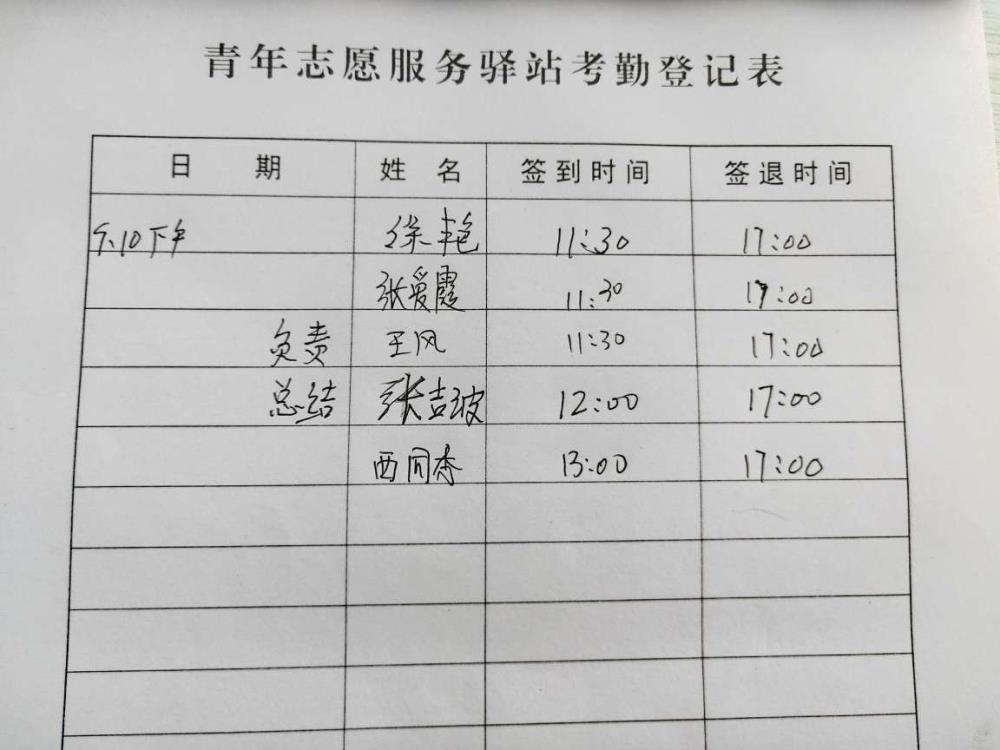 青年志愿服务驿站考勤登记表
日 期 姓 名 签到时间 签退时间
5.10下午 徐艳 11:30 17:00
张爱霞 11:30 17:00
负责 王风 11:30 17:00
总结 张吉波 12:00 17:00
西同春 13:00 17:00